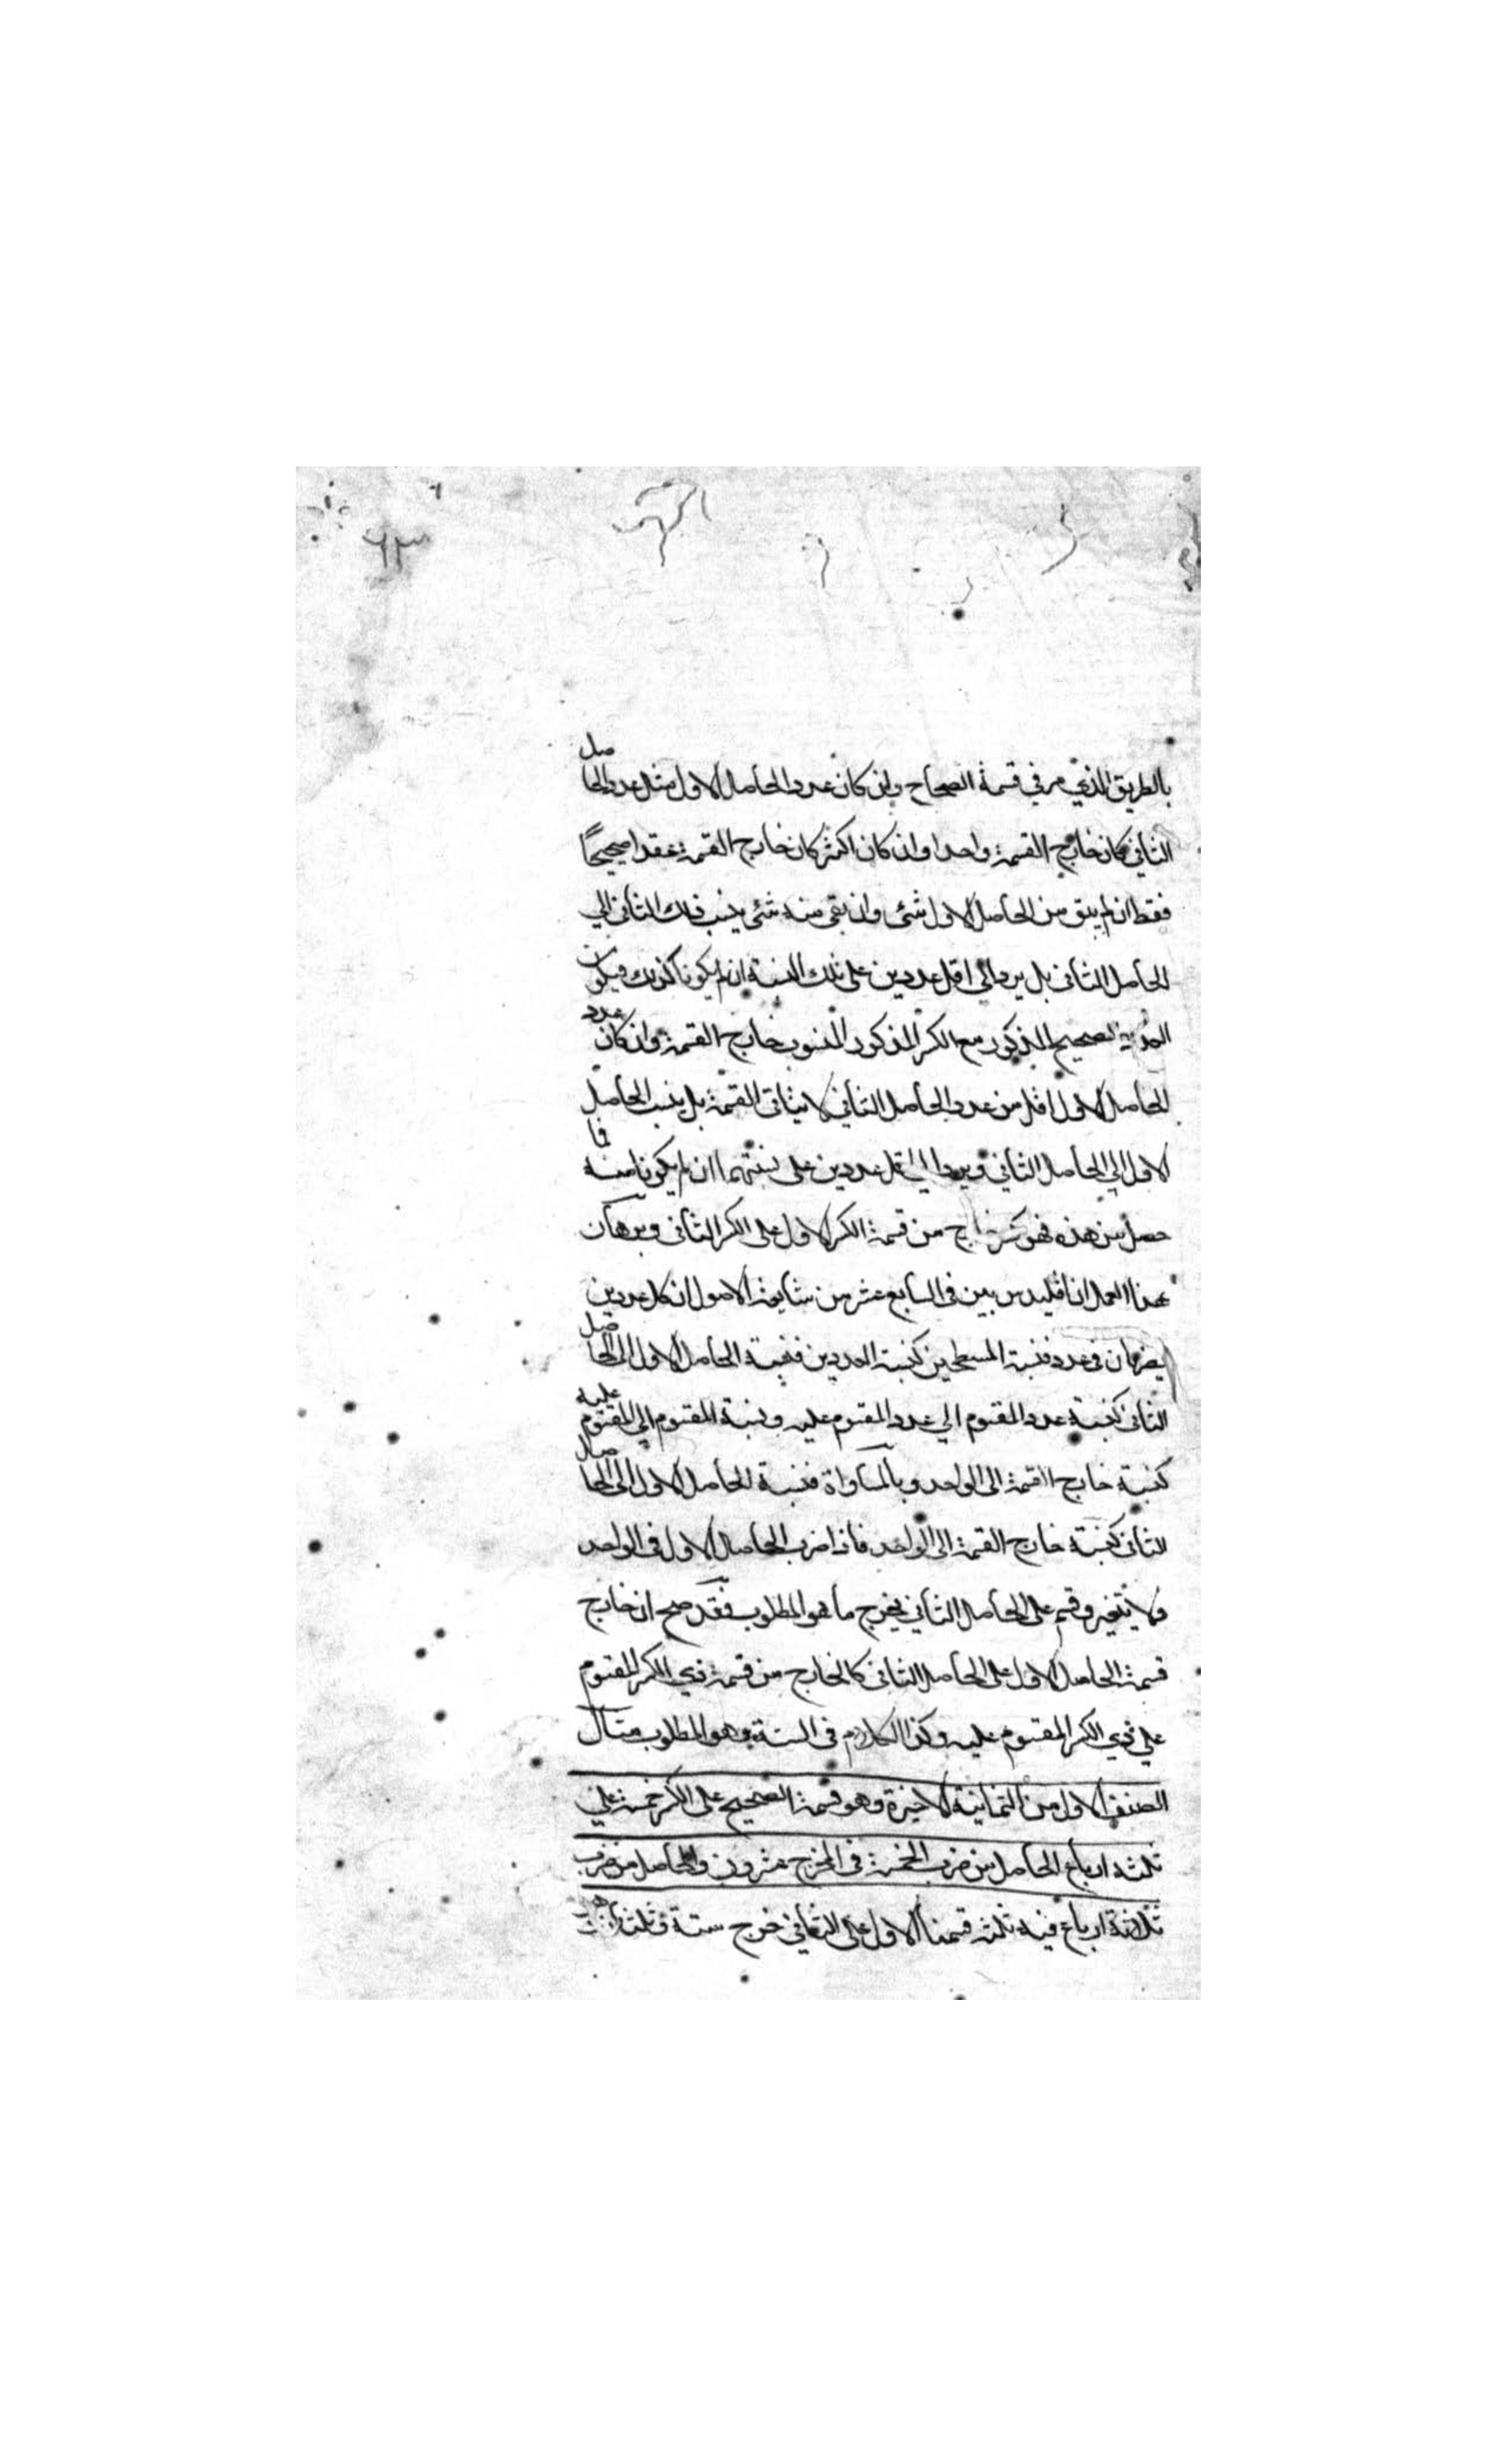 ٦٣
بالطريق الذي مر في قسمة الصحاح وان كان عدد الحاصل الاول مثل عدد الحاصل
الثاني كان خارج القسمة واحدا وان كان اكثر كان خارج القسمة عقدا صحيحاً
فقط ان لم يبق من الحاصل الاول شئ وان بقى منه شئ ينسب ذلك الثاني الي
الحاصل الثاني بل يرد الى اقل عددين على تلك النسبة ان لم يكونا كذلك ويكون
العدد الصحيح المذكور مع الكسر المذكور المنسوب خارج القسمة وان كان عدد
الحاصل الاول اقل من عدد الحاصل الثاني لا يتاتى القسمة بل ينسب الحاصل
الاول الي الحاصل الثاني ويرد الي اقل عددين على نسبتهما ان لم يكونا منه فما
حصل من هذه فهو كسر خارج من قسمة الكسر الاول على الكسر الثانى وبرهان
هذا العمل ان اقليدس بين فى السابع عشر من سابعة الاصول ان كل عددين
يضربان فى عدد فنسبة المسطحين كنسبة العددين فنسبة الحاصل الاول الى الحاصل
الثانى كنسبة عدد المقسوم الي عدد المقسوم عليه ونسبة المقسوم الي المقسوم عليه
كنسبة خارج القسمة الى الواحد وبالمساواة فنسبة الحاصل الاول الى الحاصل
الثانى كنسبة خارج القسمة الى الواحد فاذا ضرب الحاصل الاول فى الواحد
ولا يتغير وقسم على الحاصل الثاني يخرج ما هو المطلوب فقد صح ان خارج
قسمة الحاصل الاول على الحاصل الثانى كالخارج من قسمة ذي الكسر المقسوم
علي ذي الكسر المقسوم عليه وكذا الكلام فى الستة وهو المطلوب مثال
الصنف الاول من الثمانية الاخيرة وهو قسمة الصحيح على الكسر خمسة علي
ثلثه ارباع الحاصل من ضرب الخمسة فى المخرج عشرون والحاصل من ضرب
ثلاثة ارباع فيه ثلثه قسمنا الاول على الثاني خرج ستة وثلثان